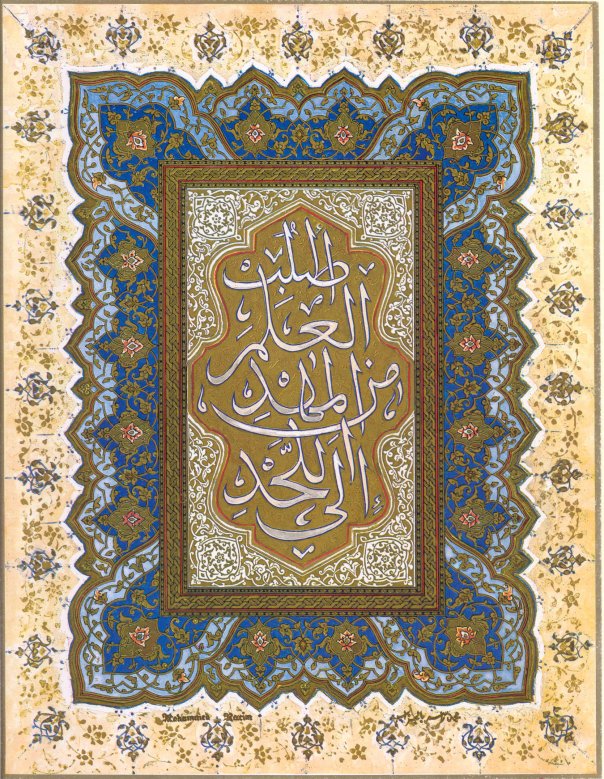 اطلب
العلم
من المهد
إلى اللحد
Mohammed